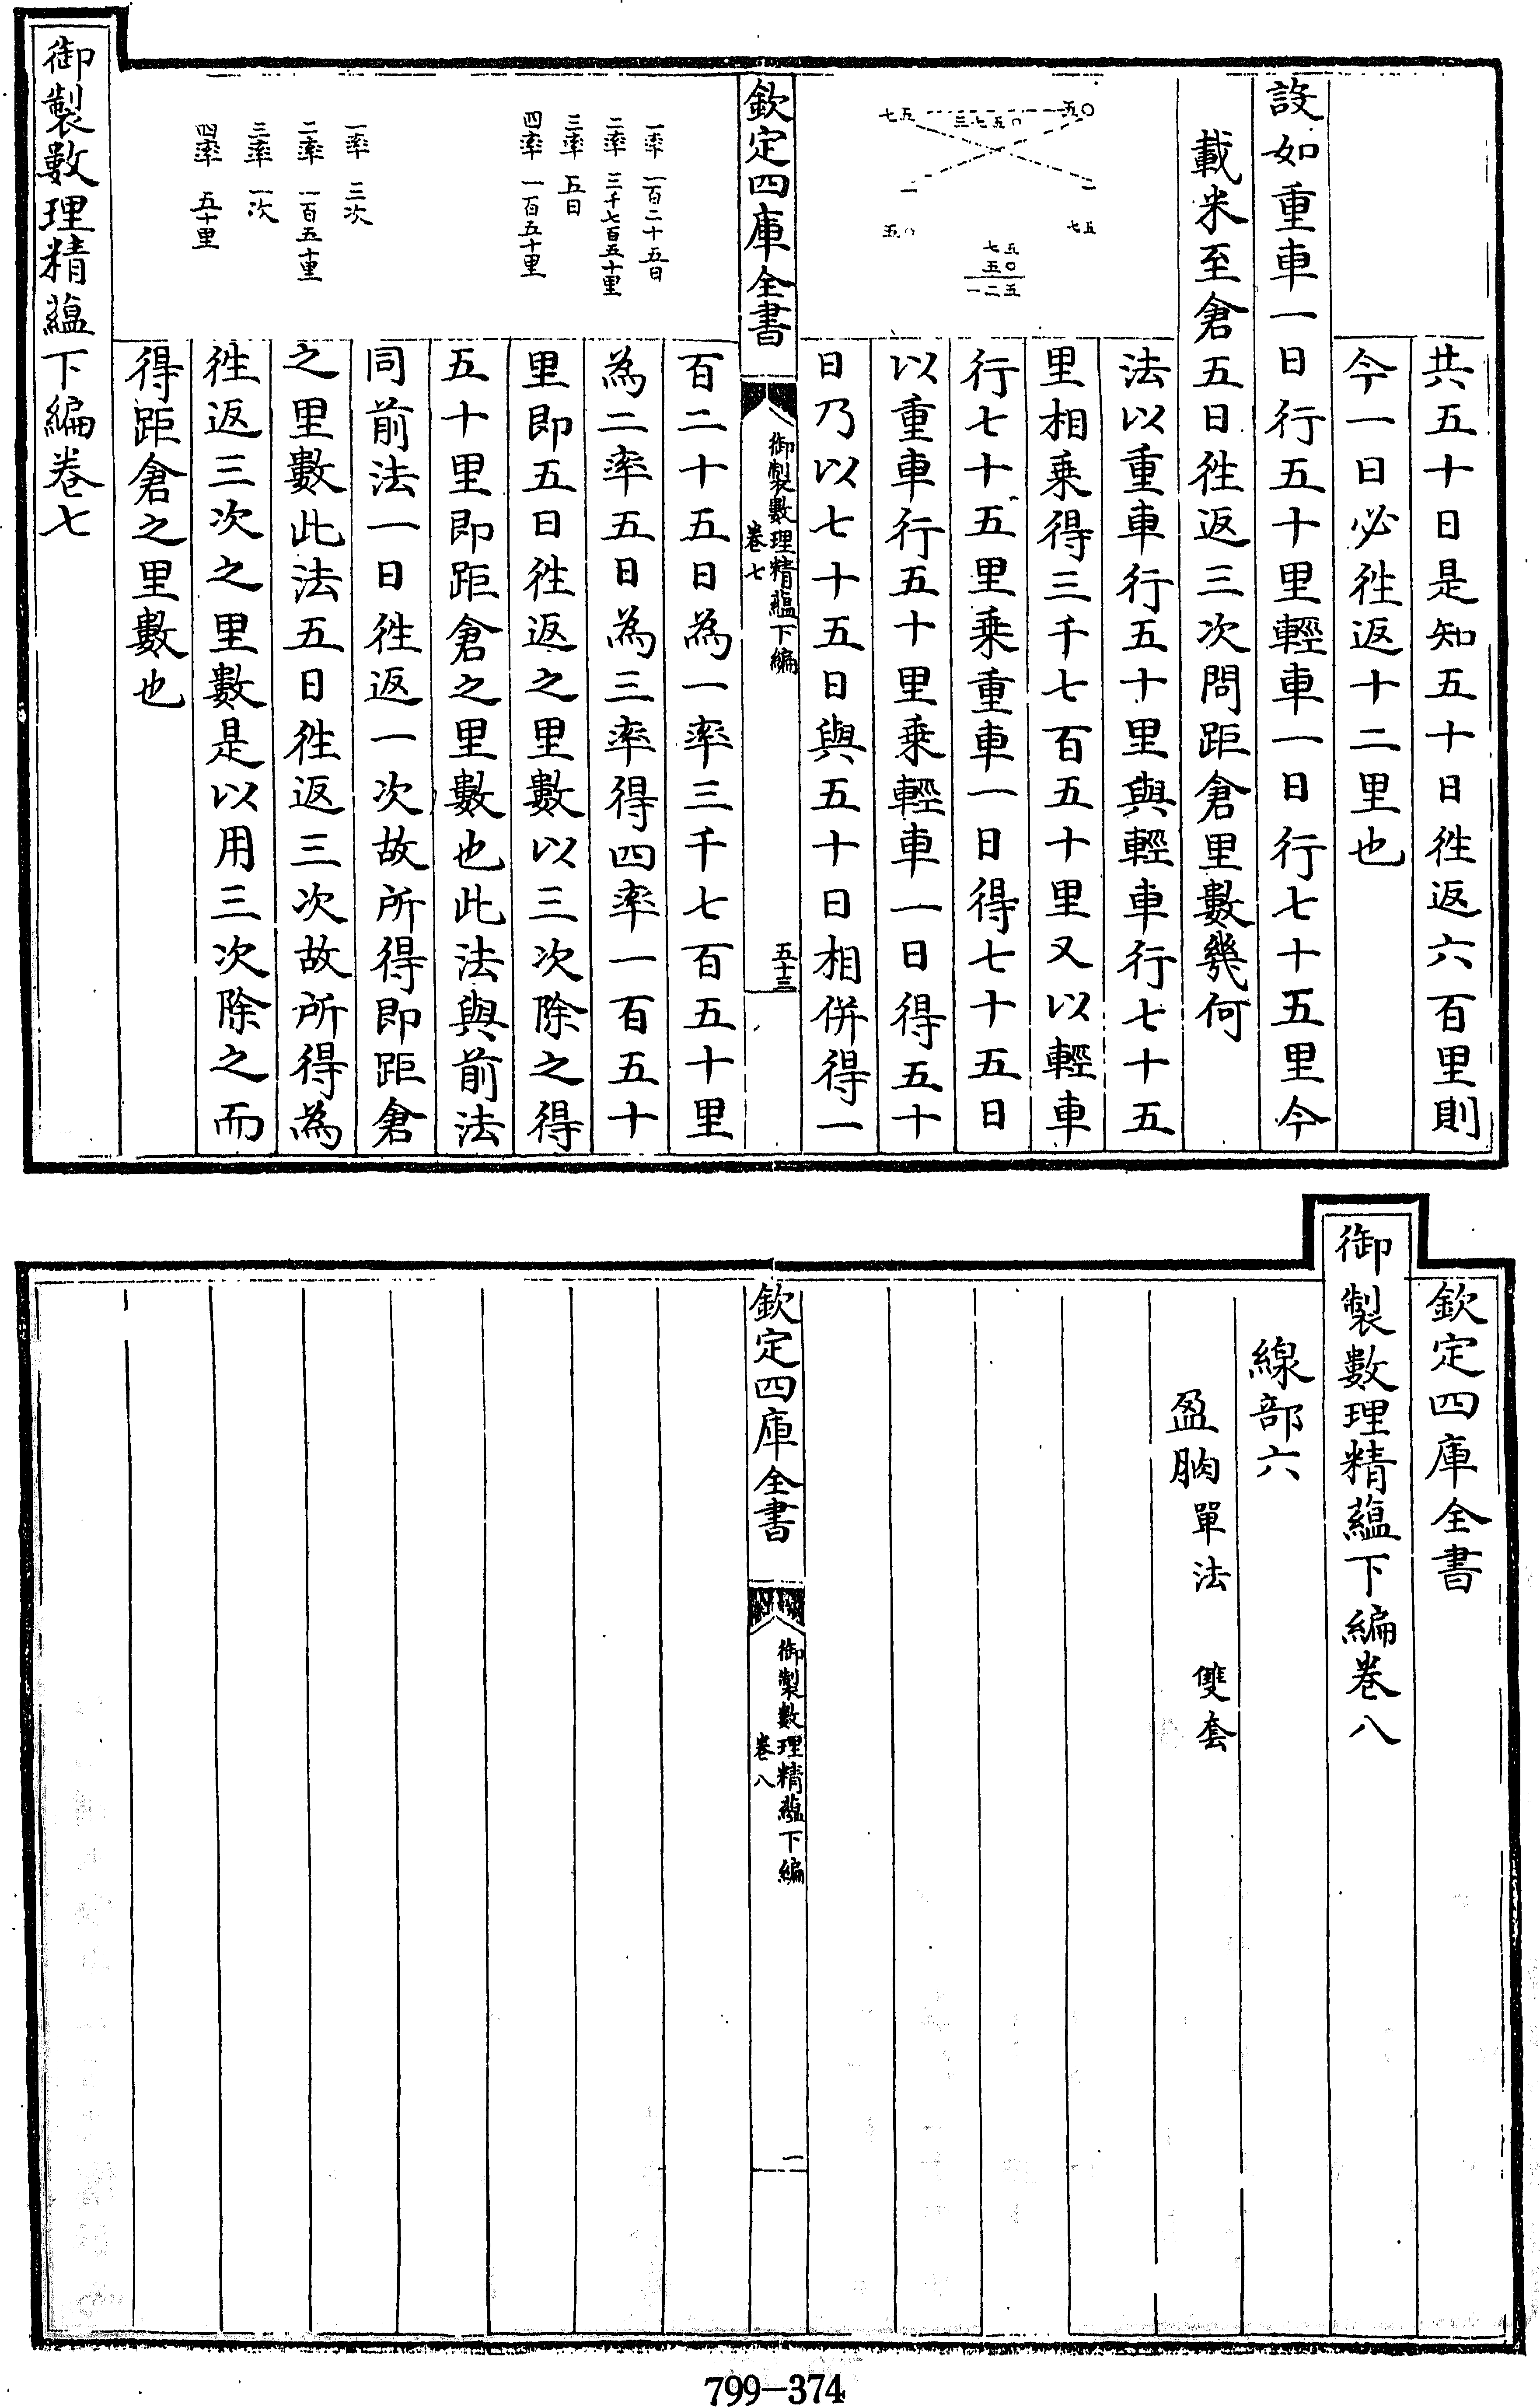 共五十日是知五十日徃返六百里則
今一日必徃返十二里也
設如重車一日行五十里輕車一日行七十五里今
載米至倉五日徃返三次問距倉里數幾何
五〇
七五
三七五〇
一
一
七五
五〇
七五
五〇
一二五
法以重車行五十里與輕車行七十五
里相乘得三千七百五十里又以輕車
行七十五里乘重車一日得七十五日
以重車行五十里乘輕車一日得五十
日乃以七十五日與五十日相併得一
欽定四庫全書
御製數理精蘊下編
卷七
五十三
一率 一百二十五日
二率 三千七百五十里
三率 五日
四率 一百五十里
一率 三次
二率 一百五十里
三率 一次
四率 五十里
百二十五日為一率三千七百五十里
為二率五日為三率得四率一百五十
里即五日徃返之里數以三次除之得
五十里即距倉之里數也此法與前法
同前法一日徃返一次故所得即距倉
之里數此法五日徃返三次故所得為
徃返三次之里數是以用三次除之而
得距倉之里數也
御製數理精蘊下編卷七
欽定四庫全書
御製數理精蘊下編卷八
線部六
盈朒單法 雙套
欽定四庫全書
御製數理精蘊下編
卷八
一
799-374